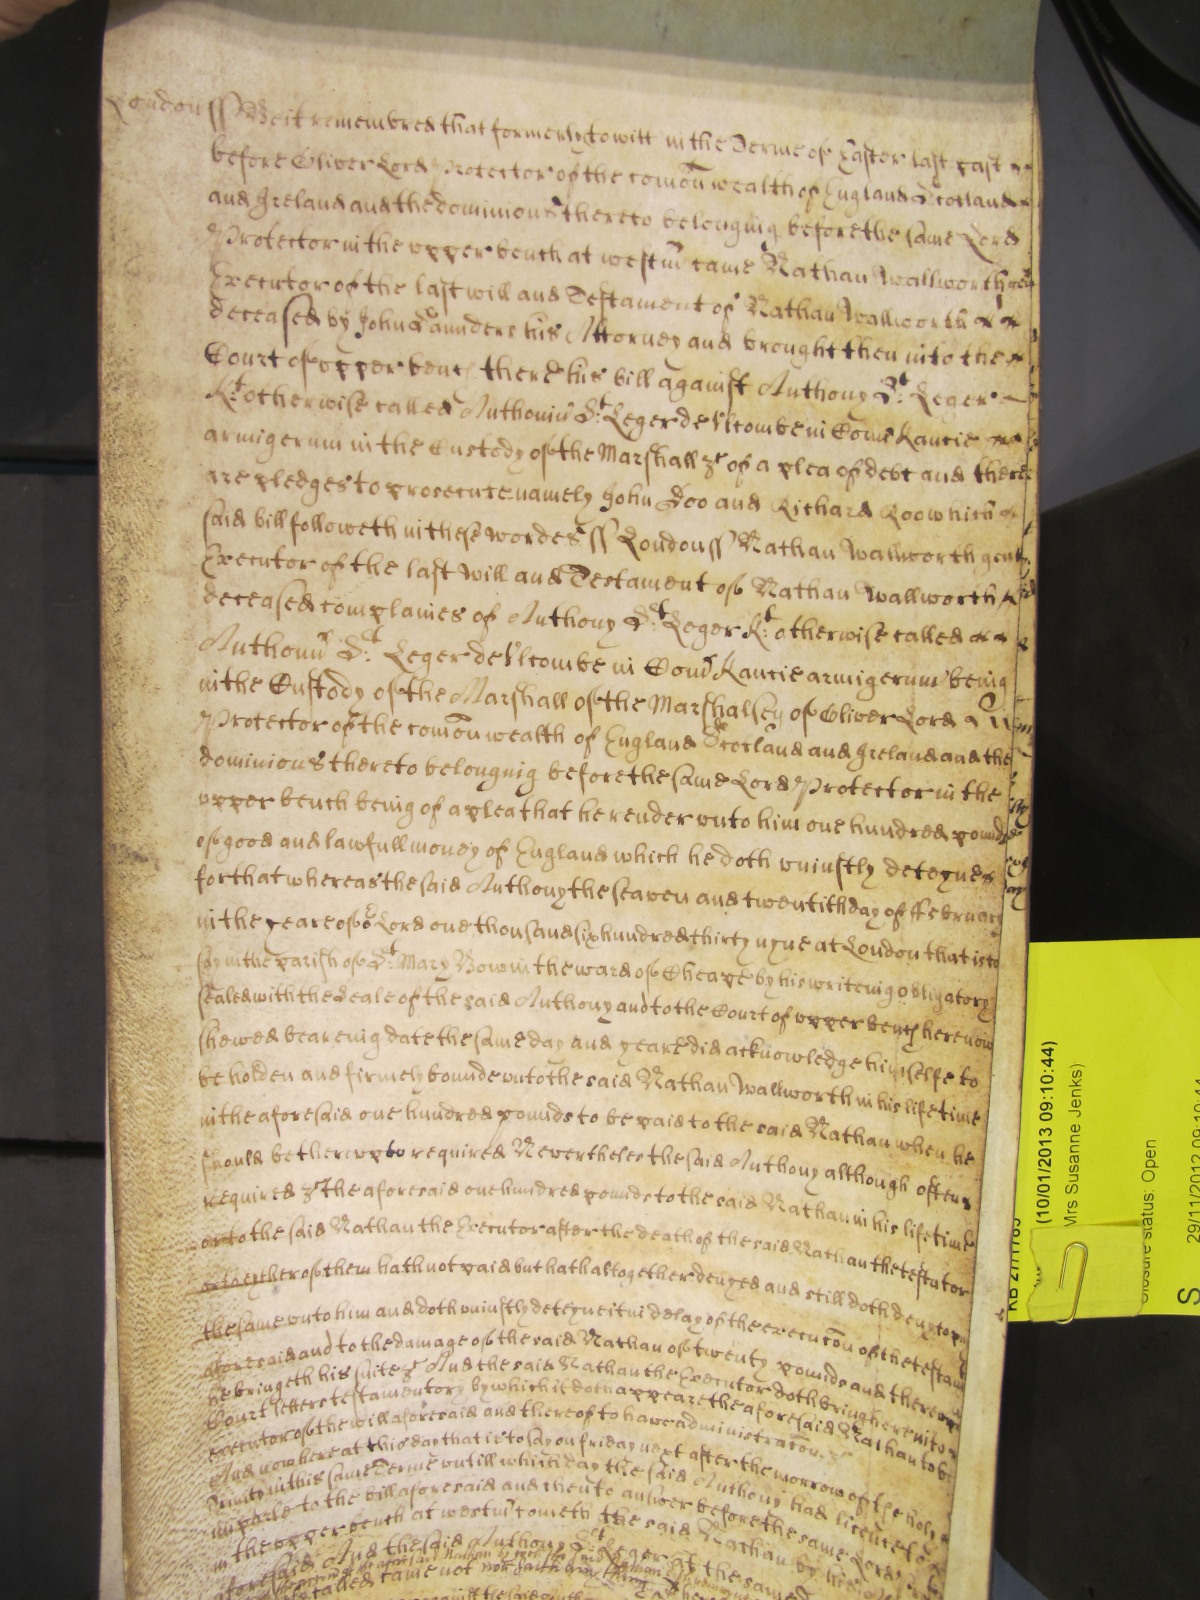 London ss Be it remembred that formerly to witt in the Terme of Easter last past
before Oliver Lord Protector of the comon wealth of England Scotland
and Ireland and the dominions thereto belonging before the same Lord
Protector in the upper bench at westm came Nathan Wallworth gen
Executor of the last will and Testament of Nathan Wallworth
deceased by John Saunders his Attorney and brought then into the
Court of upper bench there his bill against Anthony St Leger
Kt otherwise called Anthoniu St Leger de Ulcombe in Com Kancie
armigerum in the Custody of the Marshall &c of a plea of debt and there
are pledges to prosecute namely John Doo and Richard Roo which
said bill followeth in these wordes ss London ss Nathan Wallworth gent
Executor of the last will and Testament of Nathan Wallworth
deceased complaines of Anthony St Leger Kt otherwise called
Anthoniu St Leger de Ulcombe in Com Kancie armigerum being
in the Custody of the Marshall of the Marshalsey of Oliver Lord
Protector of the comon wealth of England Scotland and Ireland and the
dominions thereto belonging before the same Lord Protector in the
upper bench being of a plea that he render unto him one hundred pounds
of good and lawfull money of England which he doth uniustly deteyne
for that whereas the said Anthony the seaven and twentith day of ffebruary
in the yeare of or Lord one thousand six hundred thirty nyne at London that is to
say in the parish of St Mary Bow in the ward of Cheape by his writeing obligatory
sealed with the Seale of the said Anthony and to the Court of upper bench here now
shewed beareing date the same day and yeare did acknowledge himselfe to
be holden and firmely bounde unto the said Nathan Wallworth in his life time
in the aforesaid one hundred pounds to be paid to the said Nathan when he
should be thereunto required Neverthelesse the said Anthony although often
required &c the aforesaid one hundred pounds to the said Nathan in his life time
or to the said Nathan the Executor after the death of the said Nathan the testator
or to eyther of them hath not paid but hath altogether denyed and still doth deny to pay
the same unto him and doth uniustly deteyne it in delay of the execucon of the testam
aforesaid and to the damage of the said Nathan of twenty pounds and thereupon
he bringeth his suite &c And the said Nathan the Executor doth bring here into
Court letters testamentory by which it doth appeare the aforesaid Nathan to be
executor of the will aforesaid and thereof to have administracon &c
And now here at this day that is to say on friday next after the morrow of the holy
Trinity in this same Terme untill which day the said Anthony had licence to
imparle to the bill aforesaid and then to answer before the same Lord
in the upper bench at westm cometh the said Nathan by his
aforesaid And the said Anthony St Leger at the same
called came not nor saith any thing